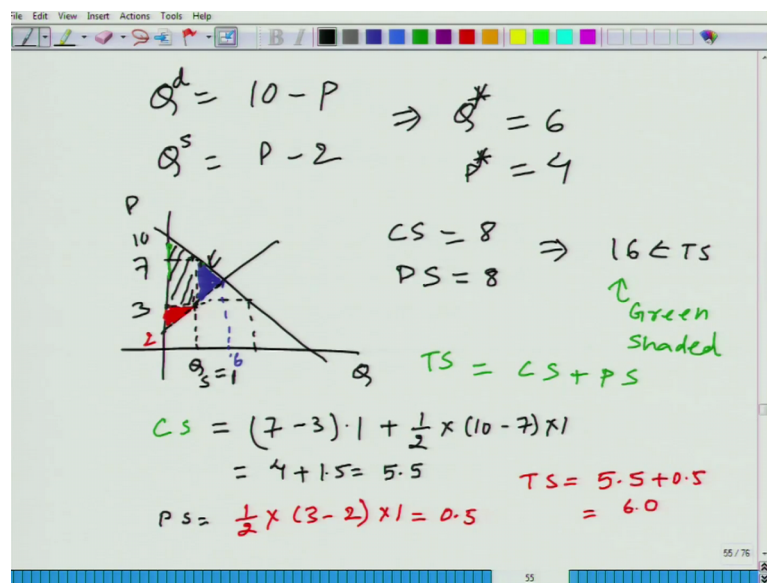 File Edit View Insert Actions Tools Help
B I
Q^d = 10 - P
Q^s = P - 2
⇒ Q* = 6
P* = 4
P
10
7
3
2
Q_s = 1
6
Q
CS = 8
PS = 8
⇒ 16 ← TS
↑
Green
Shaded
TS = CS + PS
CS = (7 - 3)·1 + 1/2 × (10 - 7) × 1
= 4 + 1.5 = 5.5
PS = 1/2 × (3 - 2) × 1 = 0.5
TS = 5.5 + 0.5
= 6.0
55 / 76
55